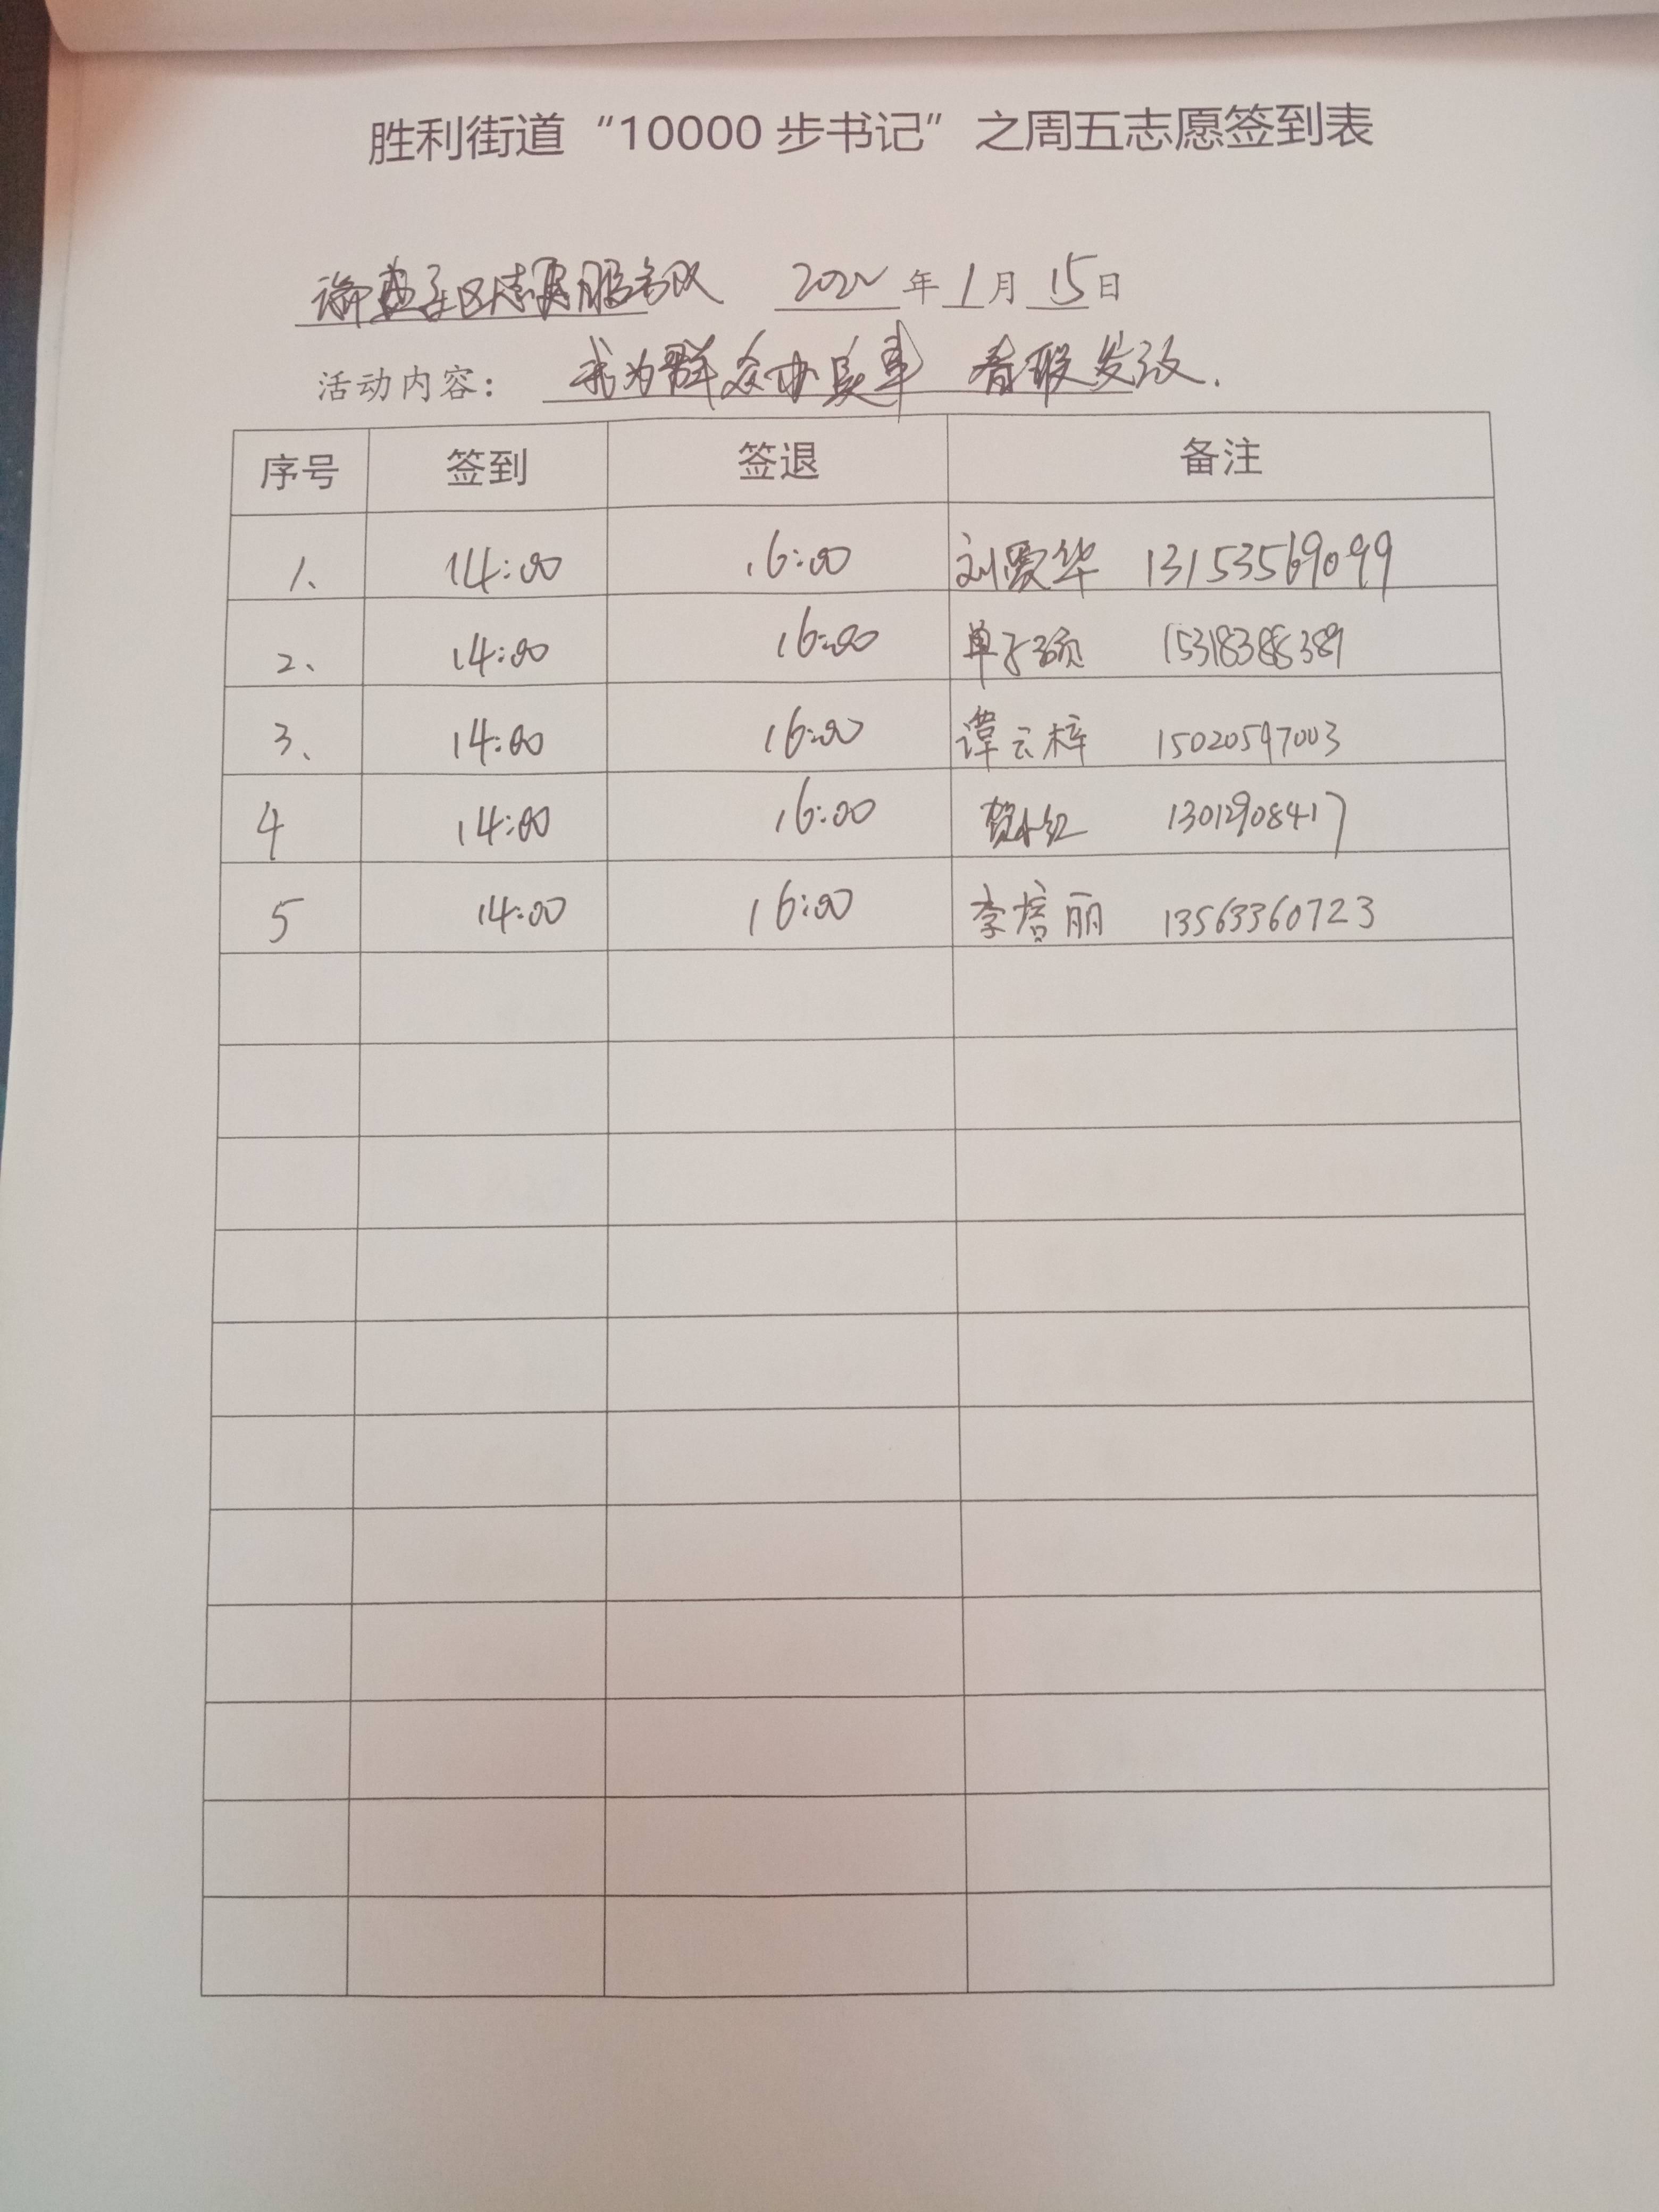 胜利街道“10000步书记”之周五志愿签到表
社区志愿服务队 2022年1月15日
活动内容： 我为群众办实事 看眼发放.
序号 签到 签退 备注
1、 14:00 16:00 刘爱华 13153569099
2、 14:00 16:00 单子硕 15318388389
3、 14:00 16:00 谭云梓 15020597003
4 14:00 16:00 贺小红 13012908417
5 14:00 16:00 李培丽 13563360723